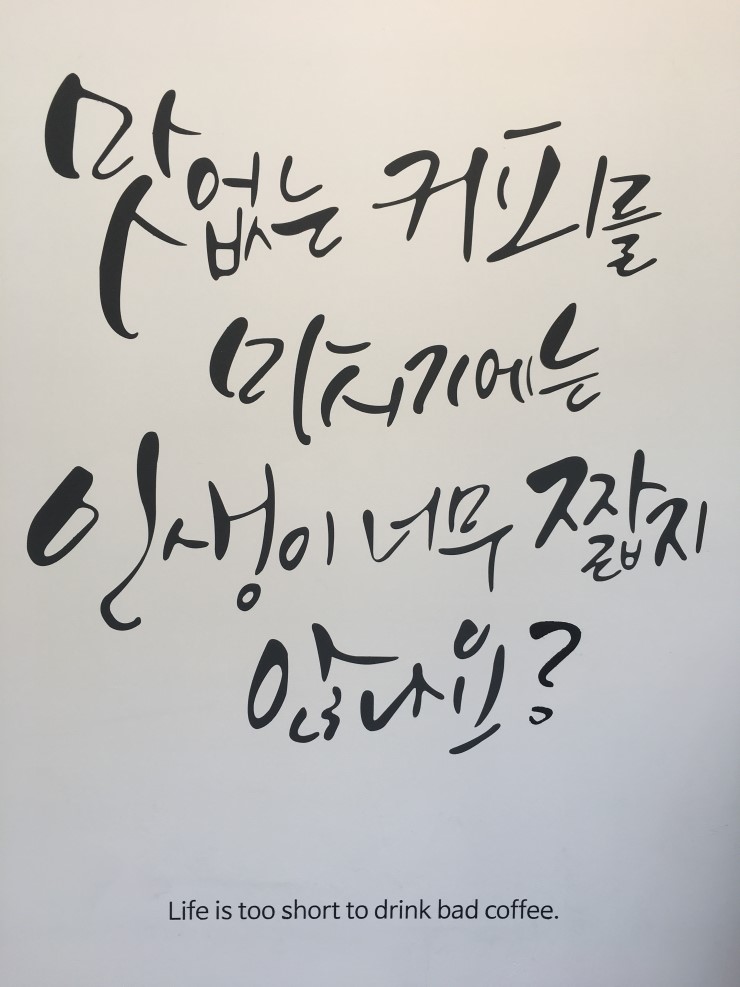 맛없는 커피를
마시기에는
인생이 너무 짧지
않나요?
Life is too short to drink bad coffee.